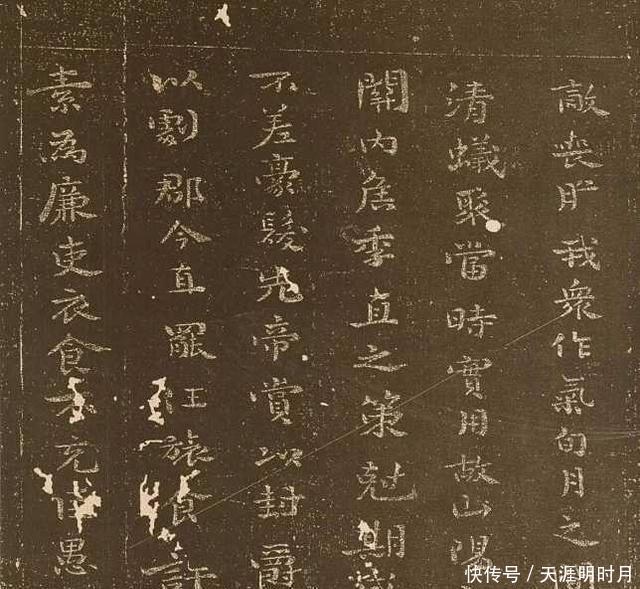 敵喪膽我衆作氣旬月之間
清蟻聚當時實用故山陽
關內侯季直之策剋期成
不差豪髮先帝賞以封爵
以劇郡今直罷任旅食許
素為廉吏衣食不充臣愚
快传号 / 天涯明时月